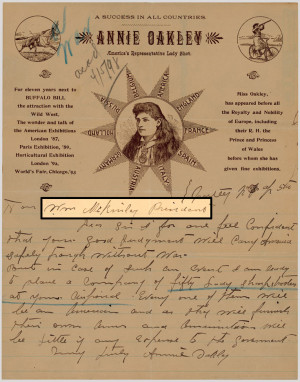 A SUCCESS IN ALL COUNTRIES.
ANNIE OAKLEY
America's Representative Lady Shot.
For eleven years next to
BUFFALO BILL
the attraction with the
Wild West.
The wonder and talk of
the American Exhibitions
London '87,
Paris Exhibition, '89,
Horticultural Exhibition
London '92,
World's Fair, Chicago, '93
ENGLAND
FRANCE
SPAIN
ITALY
AUSTRIA
Miss Oakley,
has appeared before all
the Royalty and Nobility
of Europe, including
their R. H. the
Prince and Princess
of Wales
before whom she
has given five
exhibitions.
ack'd
4/5/98
Nutley N.J. April 5th
To Hon Wm McKinley President
Dear Sir I for one feel Confident
that your good judgment will carry America
safely through without War
But in case of such an event I am ready
to place a Company of fifty lady sharpshooters
at your disposal. Every one of them will
be an American and as they will furnish
their own Arms and Ammunition will
be little if any expense to the government
Very Truly Annie Oakley